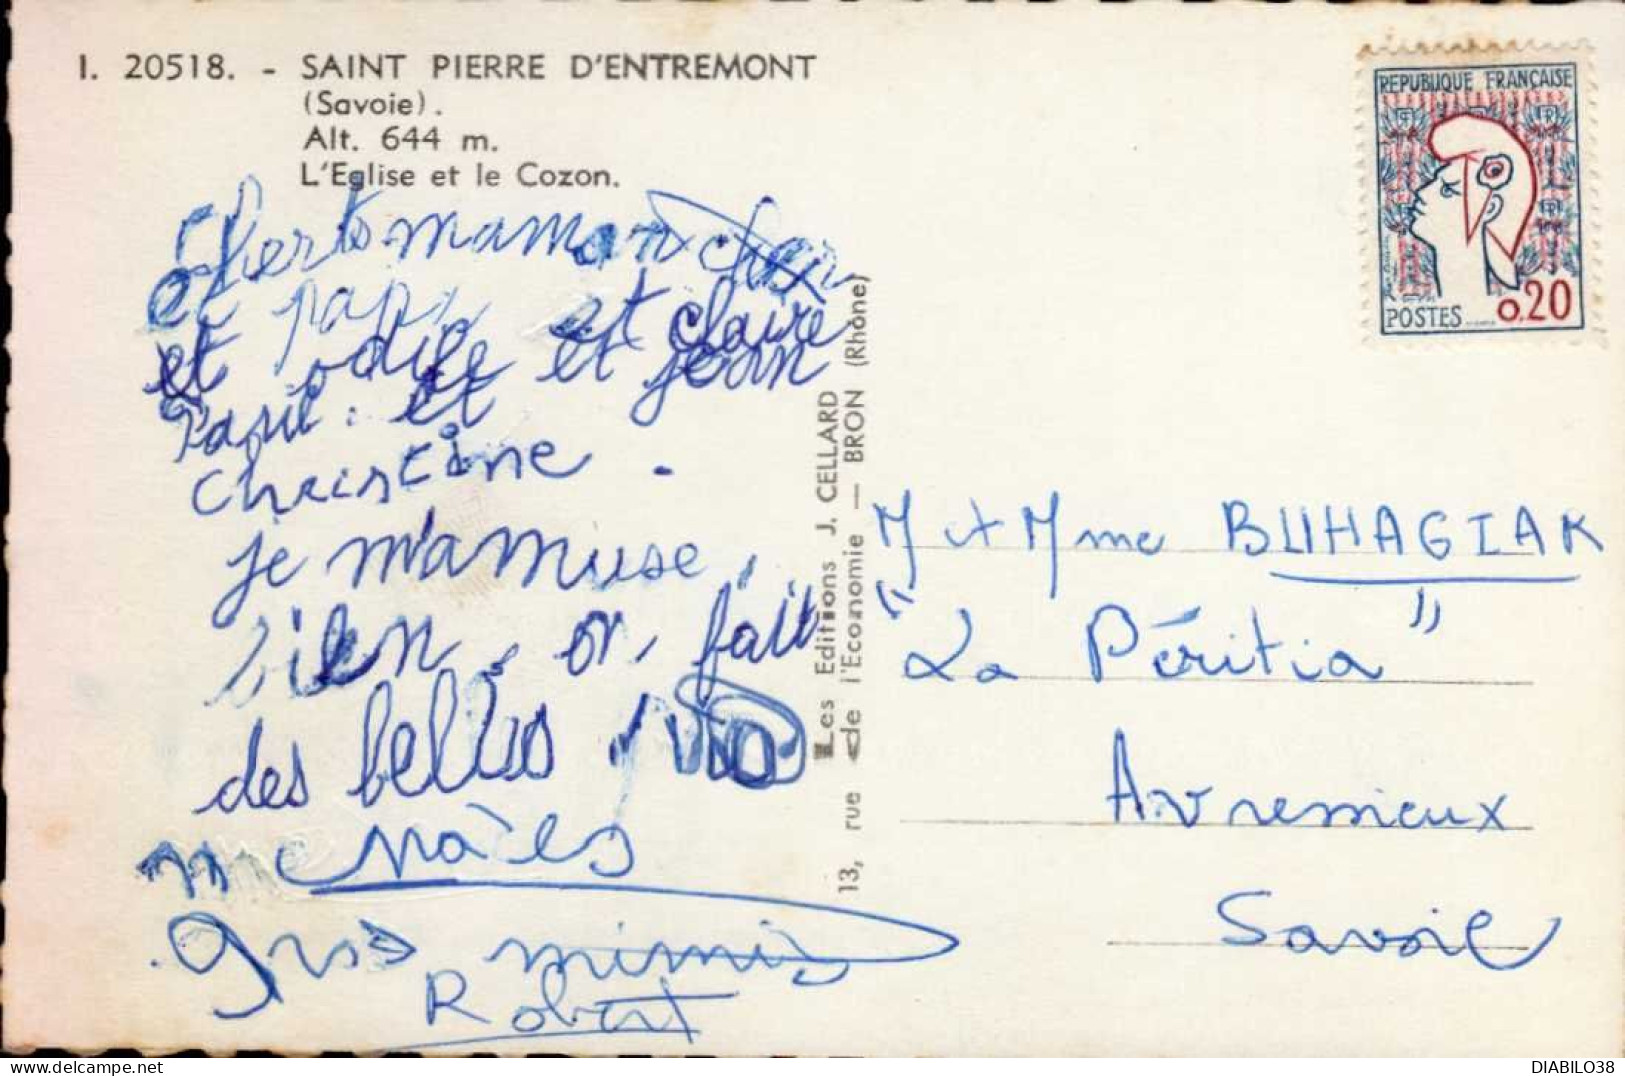 I. 20518. - SAINT PIERRE D'ENTREMONT
(Savoie).
Alt. 644 m.
L'Eglise et le Cozon.
maman cher
et papa et claire
et odile et jean
et
Christine.
je m'amuse
bien on fait
des belles

gros mimis
Robert
Les Editions J. CELLARD
13, rue de l'Economie — BRON (Rhône)
REPUBLIQUE FRANÇAISE
POSTES 0,20
M et Mme BUHAGIAR
"La Péritia"
Avressieux
Savoie
DIABILO38